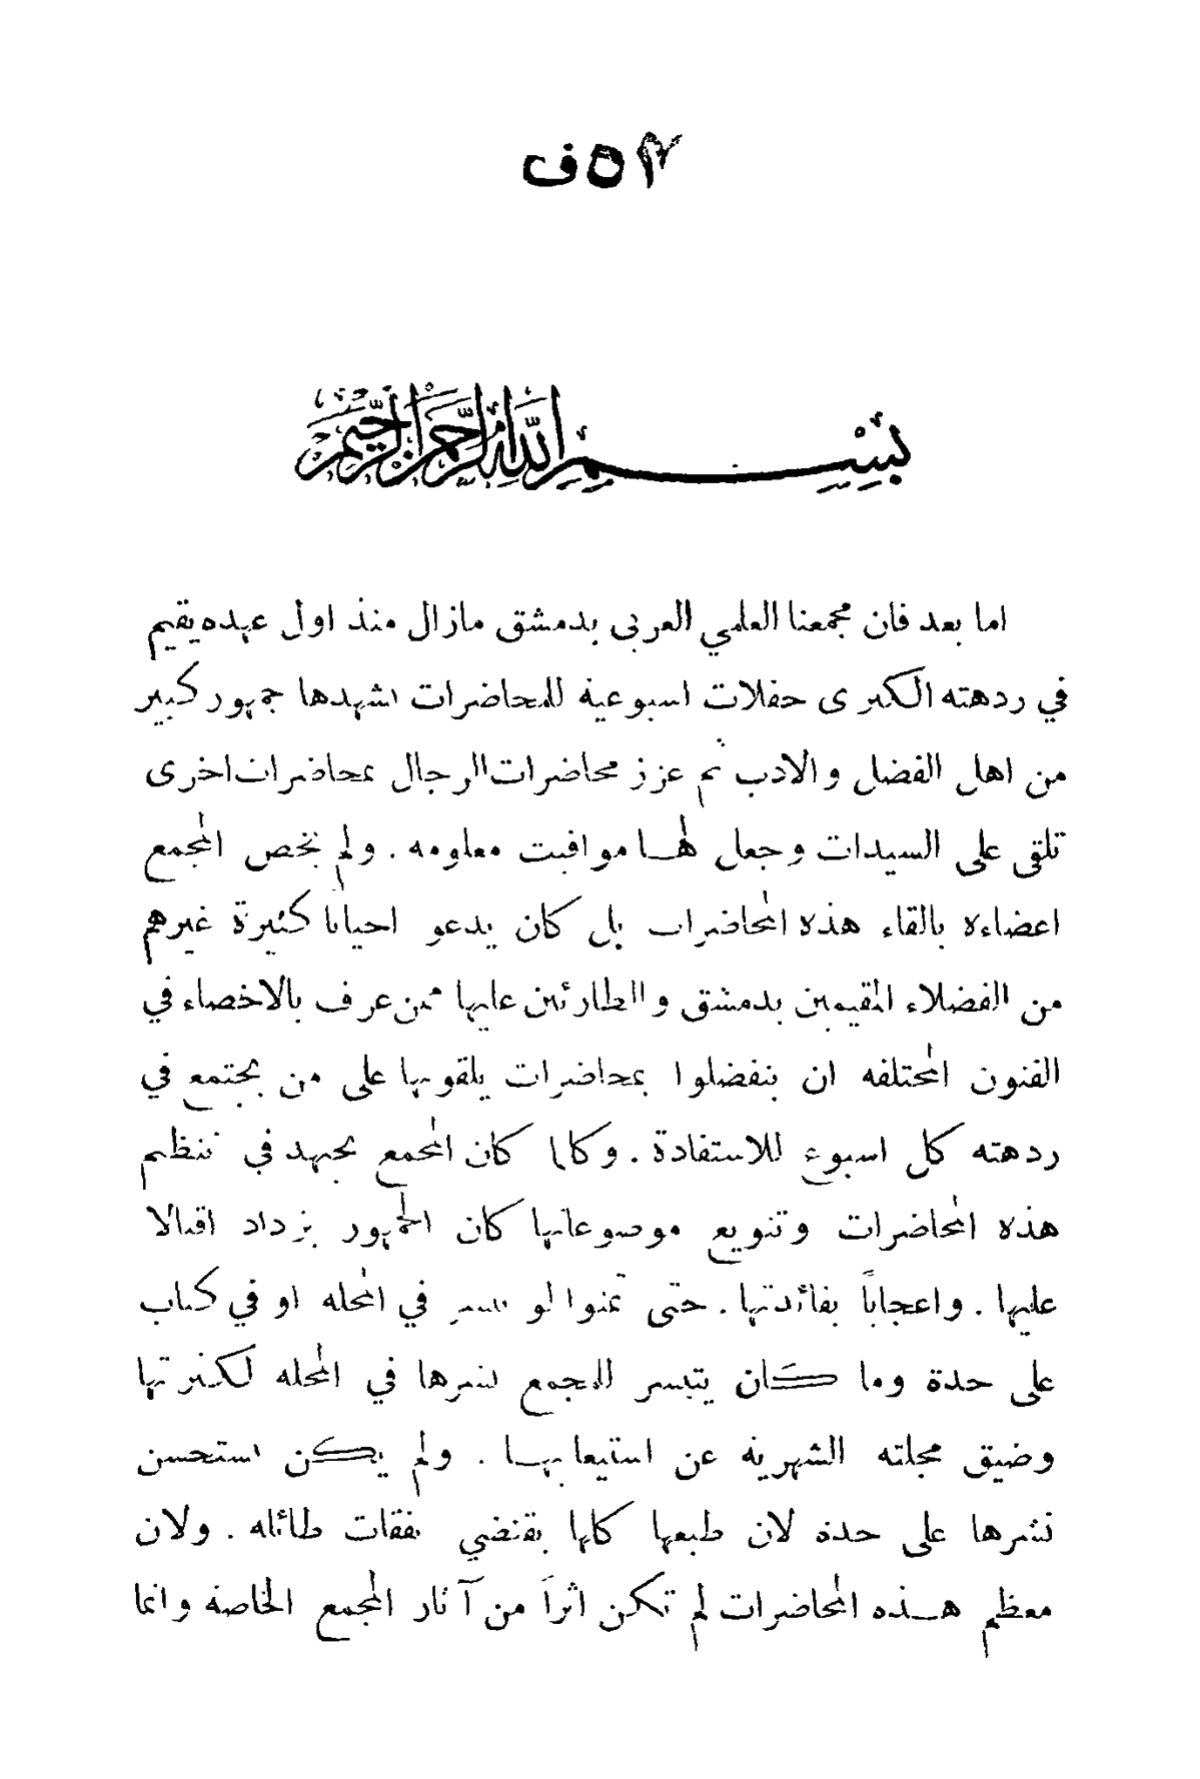 بسم الله الرحمن الرحيم
اما بعد فان مجمعنا العلمي العربي بدمشق مازال منذ اول عهده يقيم
في ردهته الكبرى حفلات اسبوعية للمحاضرات تشهدها جمهور كبير
من اهل الفضل والادب ثم عزز محاضرات الرجال بمحاضرات اخرى
تلقى على السيدات وجعل لهـا مواقيت معلومه . ولم يخص المجمع
اعضاءه بالقاء هذه المحاضرات بل كان يدعو احيانا كثيرة غيرهم
من الفضلاء المقيمين بدمشق والطارئين عليها ممن عرف بالاخصاء في
الفنون المختلفه ان يتفضلوا بمحاضرات يلقونها على من يجتمع في
ردهته كل اسبوع للاستفادة . وكلما كان المجمع يجتهد في تنظيم
هذه المحاضرات وتنويع موضوعاتها كان الجمهور يزداد اقبالا
عليها . واعجاباً بفائدتها . حتى تمنوا لو تنشر في المجله او في كتاب
على حدة وما كـان يتيسر للمجمع نشرها في المجله لكثرتها
وضيق مجلته الشهريه عن استيعابهـا . ولم يكـن نستحسن
نشرها على حدة لان طبعها كلها يقتضي نفقات طائله . ولان
معظم هـذه المحاضرات لم تكن اثراً من آثار المجمع الخاصة وانما